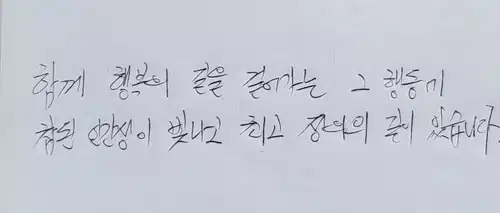 함께 행복의 길을 걸어가는 그 행동에
참된 인간성이 빛나고 최고 장의의 길이 있습니다.